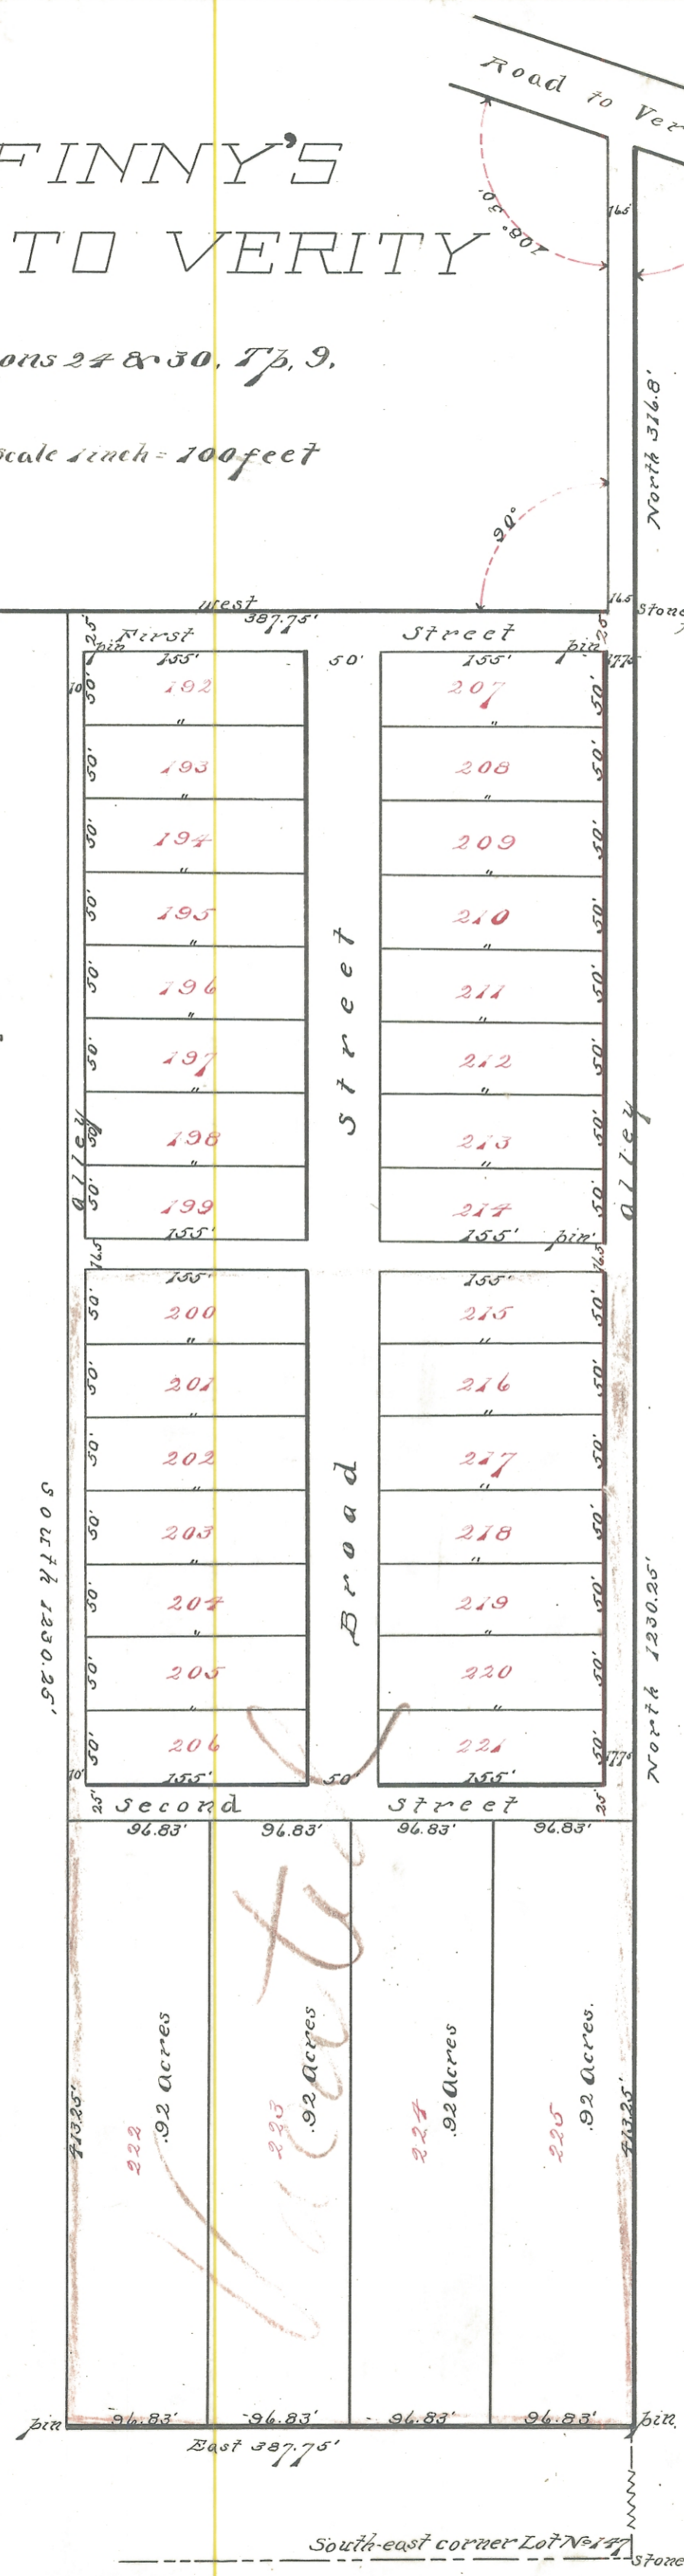 Road to Ver
FINNY'S
TO VERITY
ons 24 & 30, Tp, 9,
scale 1 inch = 100 feet
108° 30'
165
North 316.8'
90°
165
Stone
west
387.75'
25
First
Street
25
pin
155'
50'
155'
pin
17.75
10
50'
192
207
50'
"
"
50'
193
208
50'
"
"
50'
194
209
50'
"
"
50'
195
210
50'
"
"
50'
196
211
50'
"
"
50'
197
212
50'
"
"
50'
198
213
50'
"
"
50'
199
214
50'
155'
155'
pin
alley
Street
alley
16.5
16.5
155'
155'
50'
200
215
50'
"
"
50'
201
216
50'
"
"
50'
202
217
50'
"
"
50'
203
218
50'
"
"
50'
204
219
50'
"
"
50'
205
220
50'
"
"
50'
206
221
50'
10'
155'
50'
155'
17.75
Broad
South 1230.25'
North 1230.25'
25'
Second
Street
25'
96.83'
96.83'
96.83'
96.83'
413.25'
222
.92 Acres
223
.92 Acres
224
.92 Acres
225
.92 Acres.
413.25'
pin
96.83'
96.83'
96.83'
96.83'
pin.
East 387.75'
South-east corner Lot No 147
stone